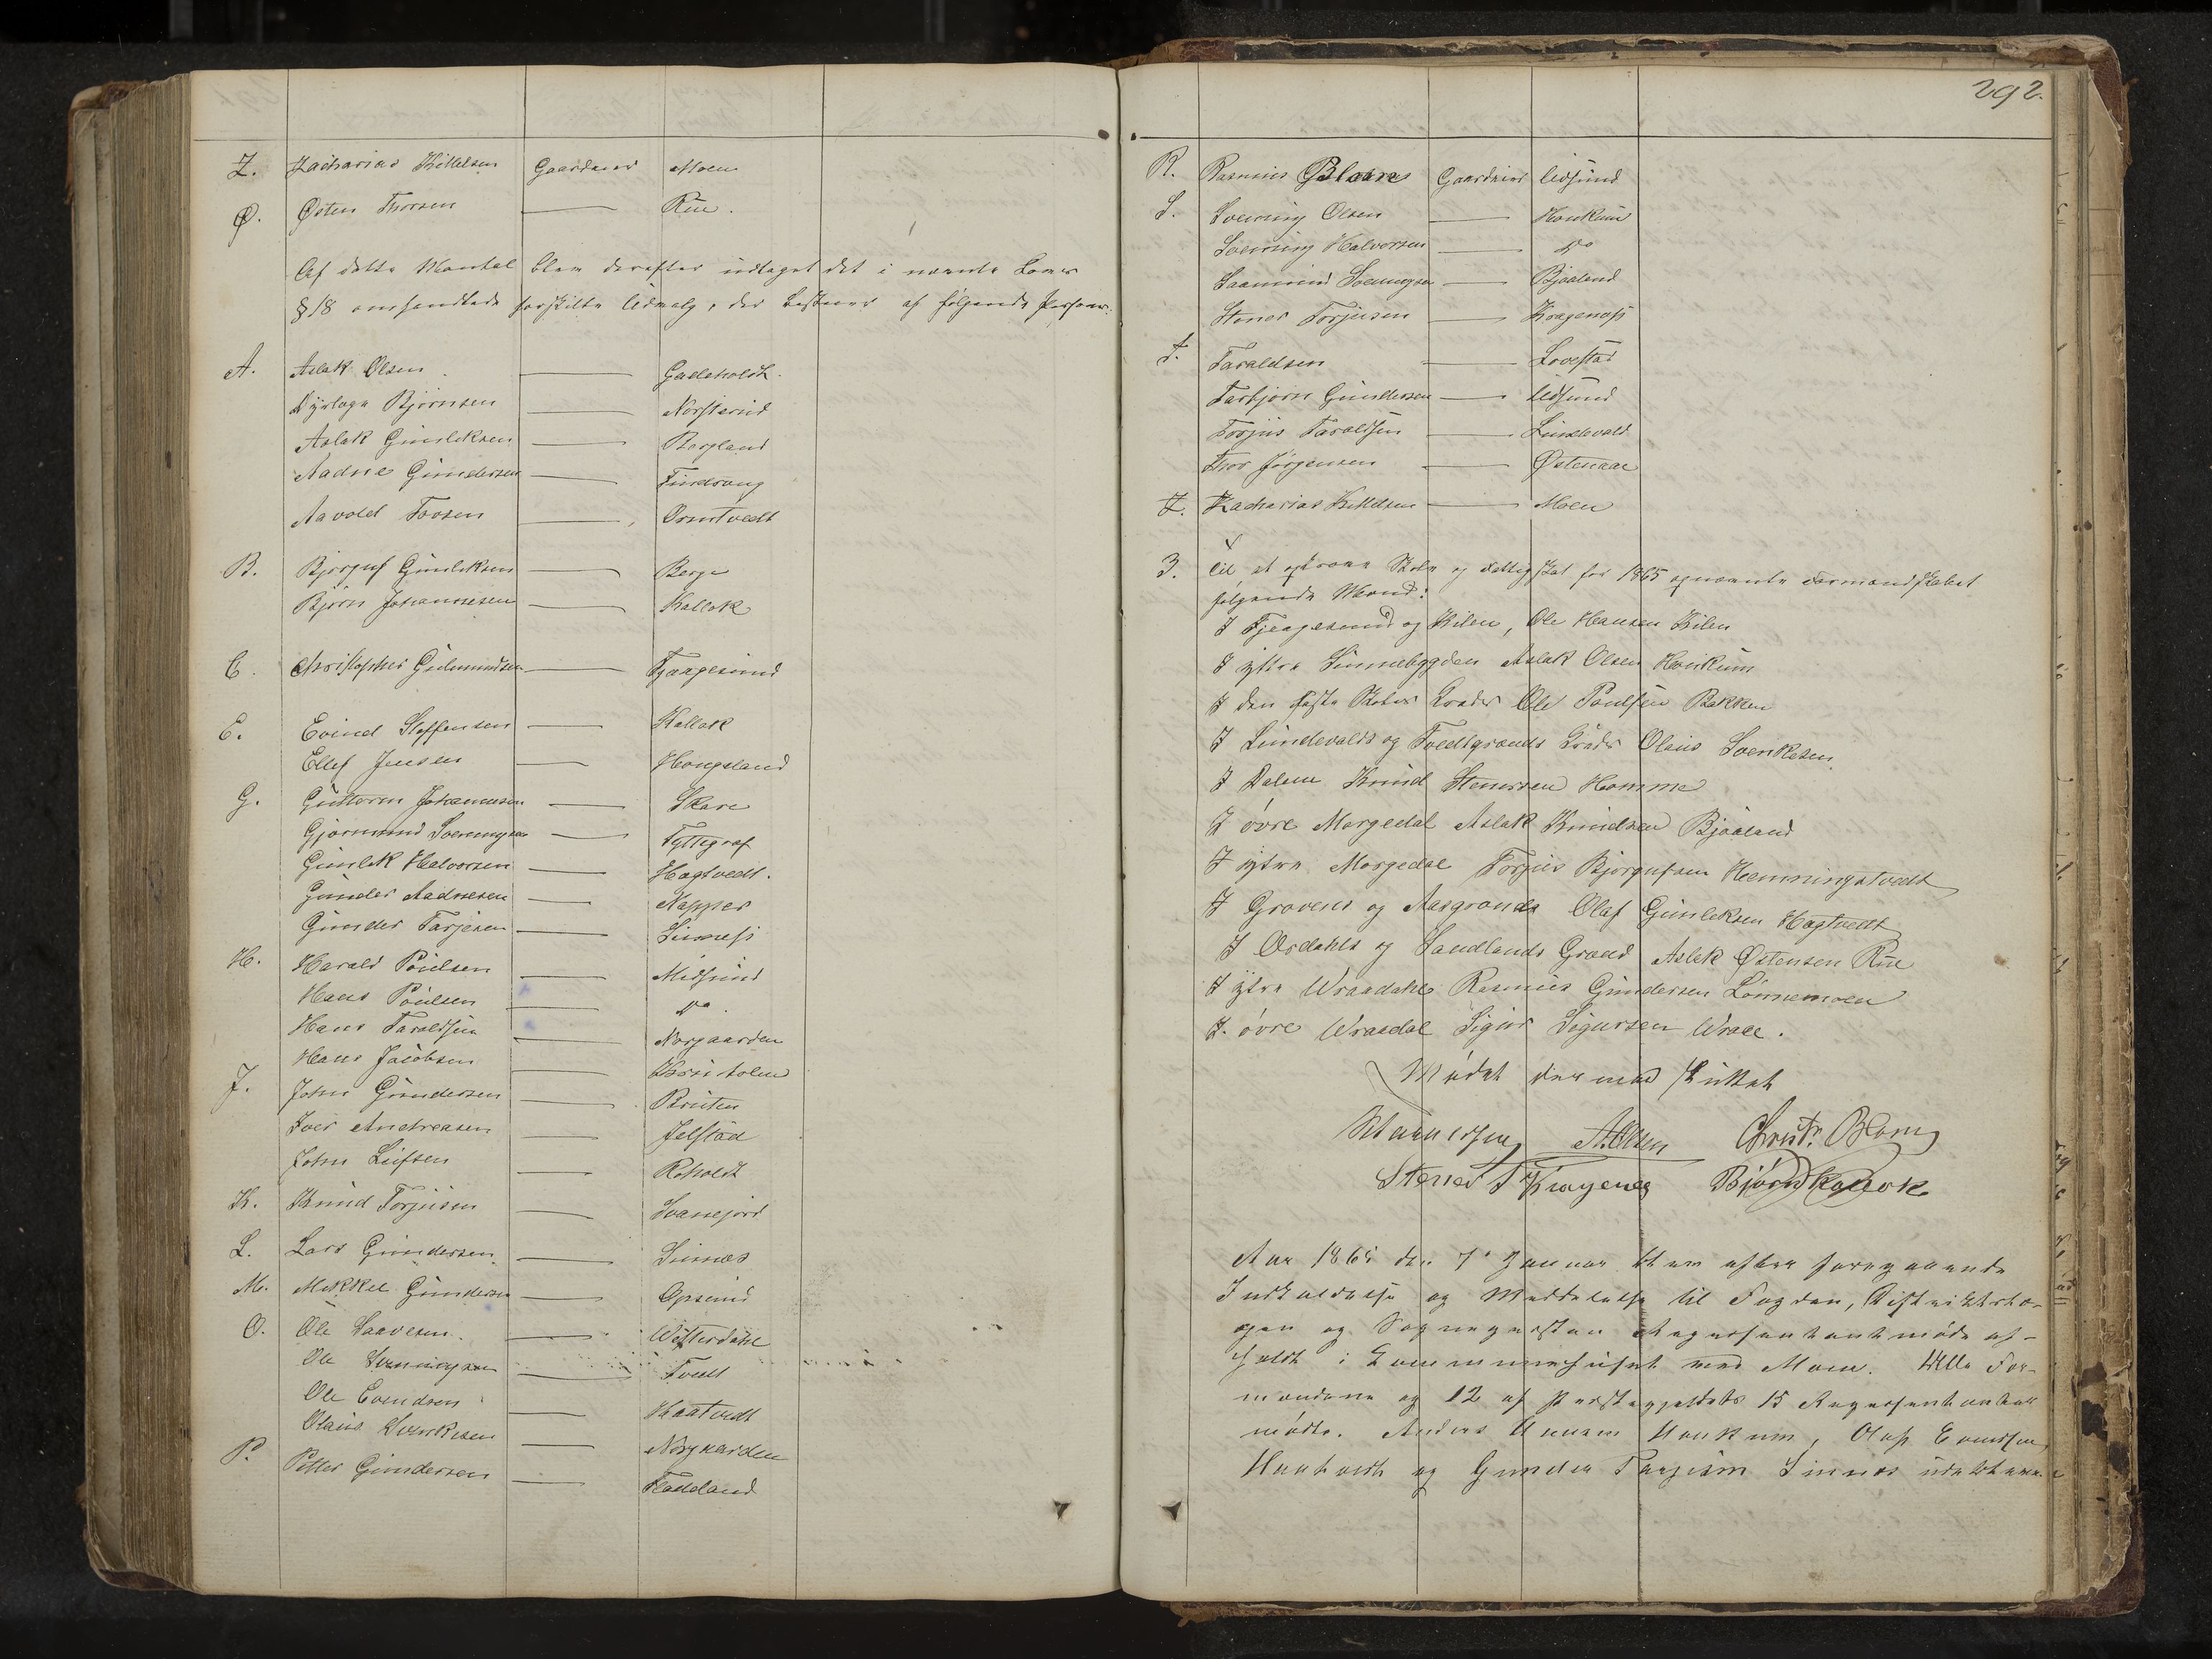 Z. Zacharias Kittelsen Gaardeier Moen
Ø. Østen Thorsen —— Rue.
Af dette Mantal blev derefter udtaget det i nævnte Lovs
§ 18 omhandlede særskilte Udvalg, der bestaaer af følgende Personer:
A. Aslak Olsen —— Gaseholdt
Dyrloge Bjørnsen —— Norsterud
Aslak Gunleksen —— Bergland
Aadne Gundersen —— Tindrong
Aavold Torsen —— Ormtvedt
B. Bjorguf Gunleksen —— Berge
Bjørn Johannesen —— Kallok
C. Christopher Gudmundsen —— Fjaagesund
E. Evind Steffensen —— Kallok
Ellef Jensen —— Hougeland
G. Guttorm Johannesen —— Skare
Gjermund Sveinungsen —— Tyttegraf
Gunlek Halvorsen —— Hagtvedt.
Gunder Aadnesen —— Napper
Gunder Tarjesen —— Sinnesß
H. Harald Poulsen —— Midsund
Hans Poulsen —— do
Hans Taraldsen —— Norgaarden
Hans Jacobsen ——
J. John Gundersen —— Bruten
Iver Andreasen —— Jelstad
John Leifsen —— Roholdt
K. Knud Torjusen —— Svanejord
L. Lars Gundersen —— Sinnes
M. Mikkel Gundersen —— Opsund
O. Ole Saavesen —— Westerdahl
Ole Sveinungsen —— Tvedt
Ole Evindsen —— Haatvedt
Olaus Svenkesen —— Norgaarden
P. Petter Gundersen —— Fladeland
292.
R. Rasmus Bloms Gaardeier Udsund
S. Sveinung Olsen —— Houkum
Sveinung Halvorsen —— do
Saamund Sveinungsen —— Bjaaland
Stener Torjusen —— Kragenæß
T. Taraldsen —— Lovestad
Tarbjørn Gundersen —— Udsund
Torjus Taraldsen —— Lundevald
Thor Jørgensen —— Østenaae
Z. Zacharias Kittelsen —— Moen
3. Til at opkræve Skole og Fattigskat for 1865 opnævnte Formandskabet
følgende Mænd:
I Fjeagesund og Kilen, Ole Hansen Kilen
I ytre Sinnebygden Aslak Olsen Houkum
I den faste Skoles Kreds Ole Poulsen Bakken
I Lundevalds og Tvedtgrænds Kreds Olaus Svenkesen
I Dalene Knud Stenersen Homme
I øvre Morgedal Aslak Knudsen Bjaaland
I ytre Morgedal Torjus Bjorgufsen Hemningstvedt
I Gravens og Aasgrænds Olaf Gunleksen Hagtvedt
I Ordahls og Sandlands Grænd Aslek Østensen Rue
I ytre Wraadahl Rasmus Gundersen Lønnemoen
I øvre Wraadal Sigur Sigursen Wraae.
Mødet dermed sluttet
A. Olsen Christ. Blom
Stener T Kragenes Bjørn Kallok
Aar 1865 den 7de Januar blev efter foregaaende
Indkaldelse og Meddelelse til Fogden, Distriktslæ-
gen og Sognepresten Repræsentantmøde af-
holdt i Communehuset ved Moen. Alle For-
mændene og 12 af Præstegjeldets 15 Repræsentanter
mødte. Anders Houkum, Olaf Evindsen
Haatvedt og Gunder Tarjesen Sinnes udebleve